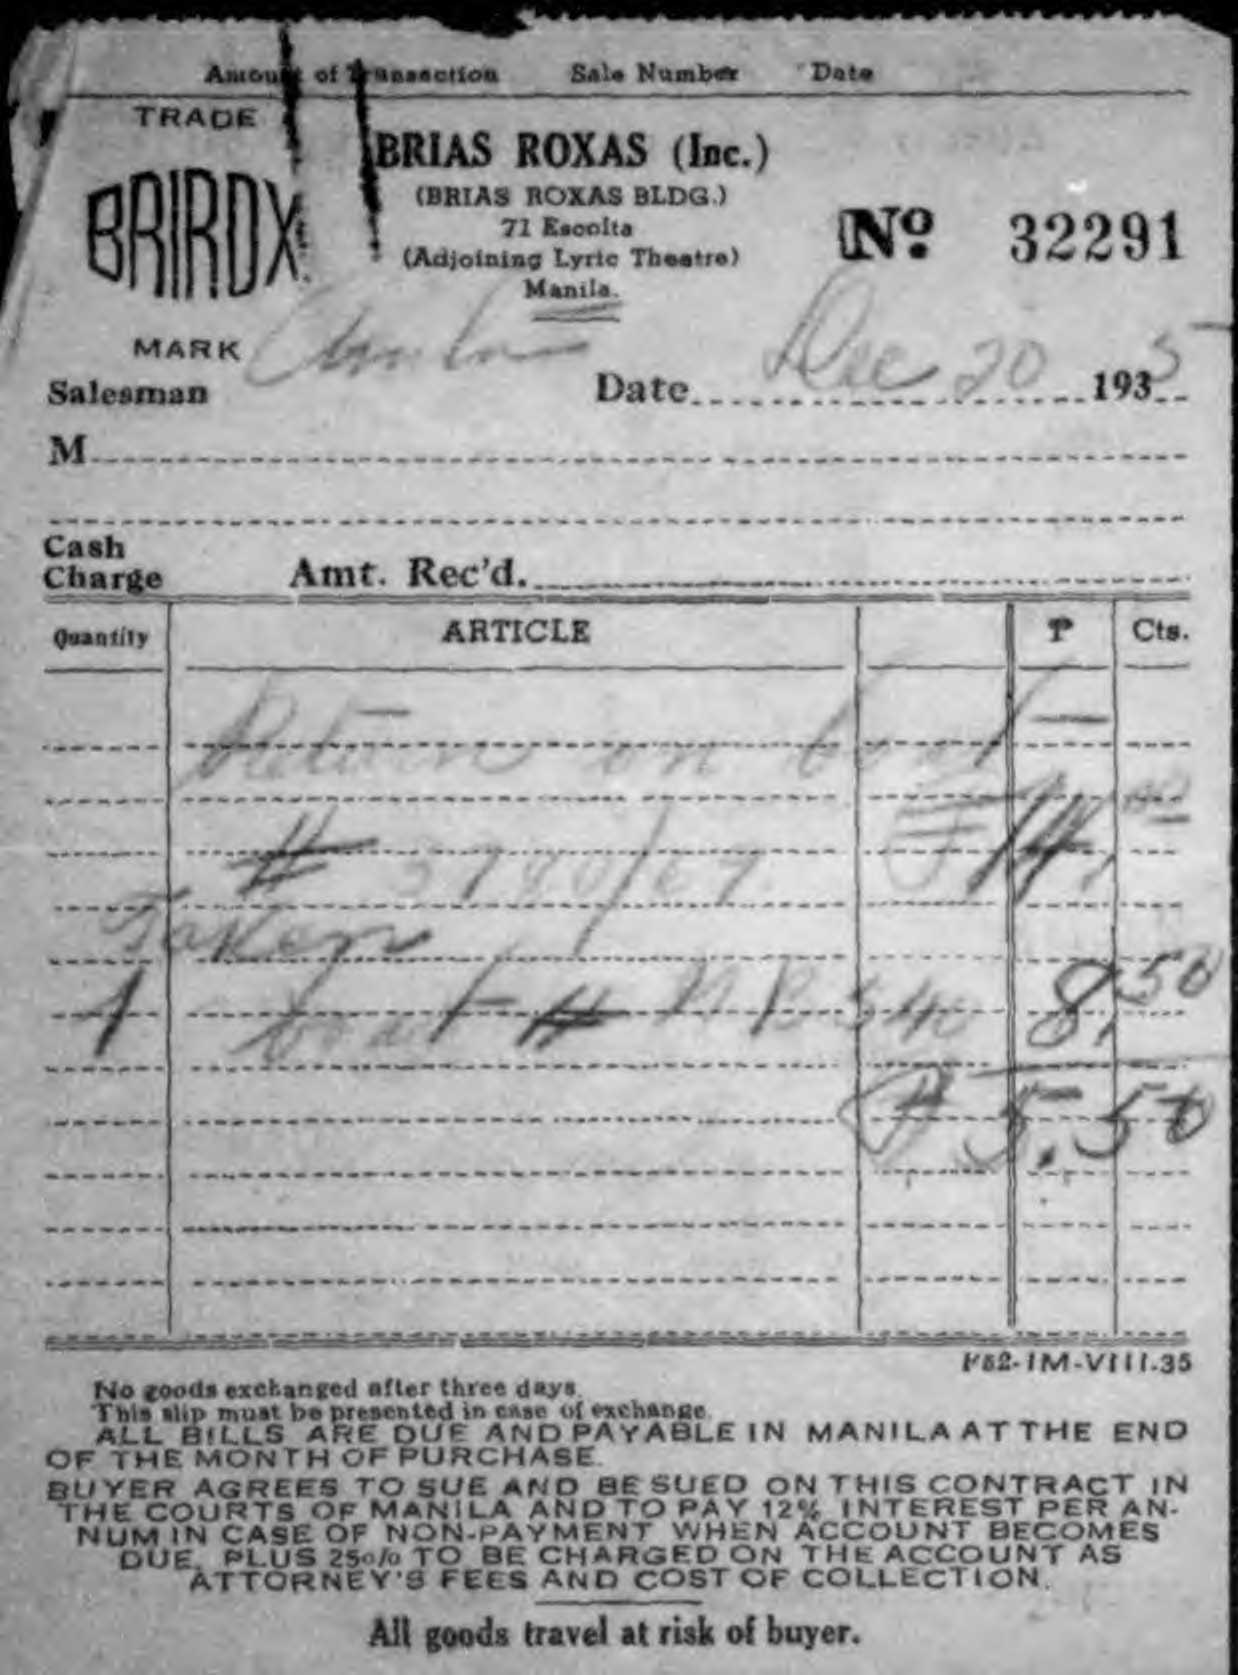 Amount of Transaction Sale Number Date
TRADE
BRIROX
MARK
BRIAS ROXAS (Inc.)
(BRIAS ROXAS BLDG.)
71 Escolta
(Adjoining Lyric Theatre)
Manila.
Nº 32291
Salesman
Date Dec 20 1935
M
Cash
Charge Amt. Rec'd.
Quantity ARTICLE ₱ Cts.
Return on boat
# 3780/67 ₱14.00
Taken
1 boat # NB 340 8.50
₱ 5.50
F52-1M-VIII.35
No goods exchanged after three days.
This slip must be presented in case of exchange.
ALL BILLS ARE DUE AND PAYABLE IN MANILA AT THE END
OF THE MONTH OF PURCHASE.
BUYER AGREES TO SUE AND BE SUED ON THIS CONTRACT IN
THE COURTS OF MANILA AND TO PAY 12% INTEREST PER AN-
NUM IN CASE OF NON-PAYMENT WHEN ACCOUNT BECOMES
DUE, PLUS 25o/o TO BE CHARGED ON THE ACCOUNT AS
ATTORNEY'S FEES AND COST OF COLLECTION.
All goods travel at risk of buyer.